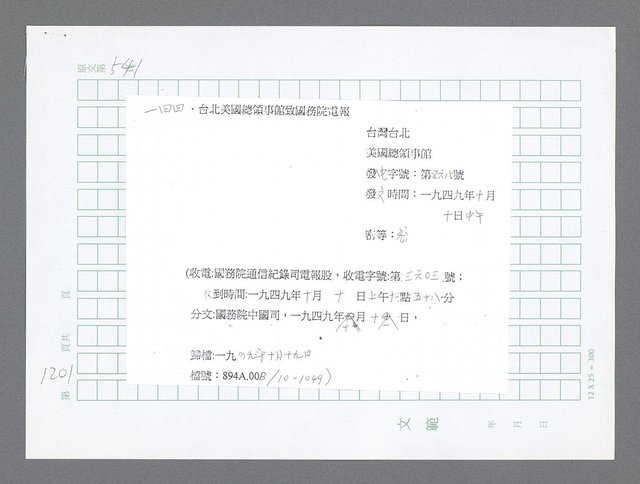 原文第541
一四四・台北美國總領事館致國務院電報
台灣台北
美國總領事館
發電字號：第 號
發文時間：一九四九年十月
十日中午
密等：
(收電:國務院通信紀錄司電報股，收電字號:第三六〇三號：
收到時間:一九四九年十月 十 日上午七點五十八分
分文:國務院中國司，一九四九年 月十 日，
歸檔:一九四九年十月十九日
檔號：894A.00B/10-1049)
第1201頁共 頁
12 X 25 = 300
文範 年 月 日